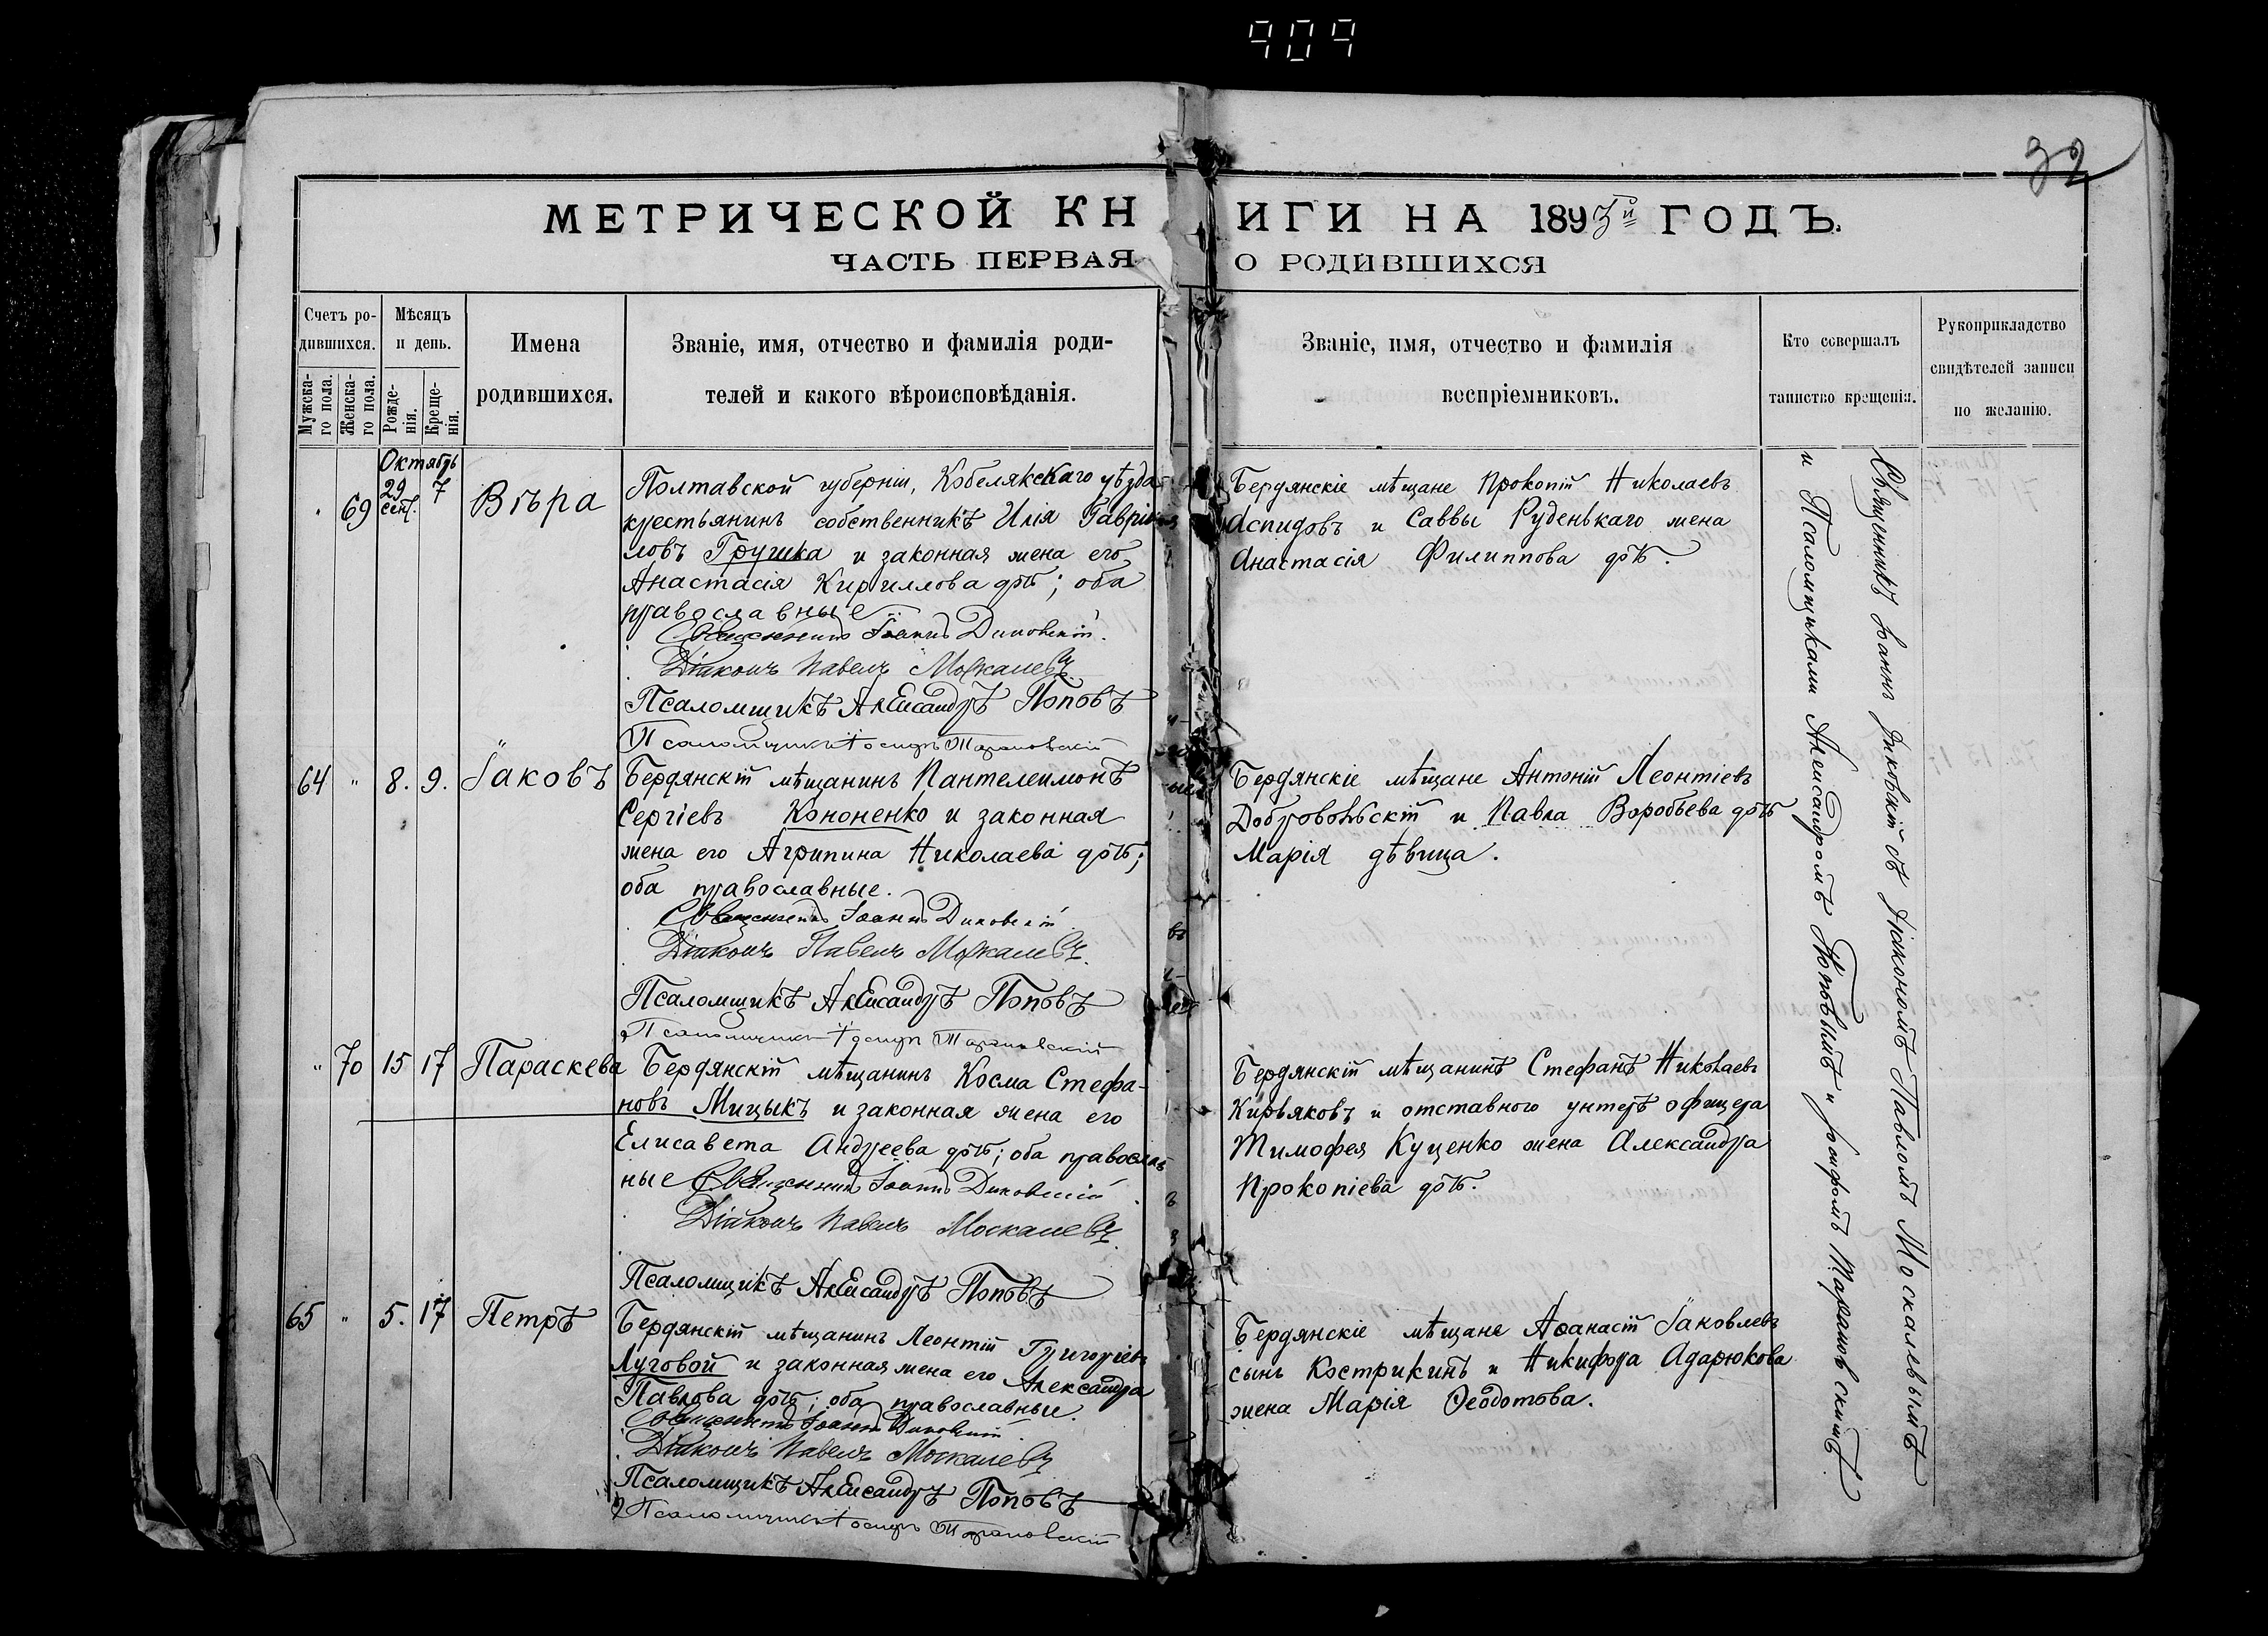 909
32
МЕТРИЧЕСКОЙ КНИГИ НА 1893й ГОДЪ.
ЧАСТЬ ПЕРВАЯ О РОДИВШИХСЯ
Счетъ ро-
дившихся.
Мужска-
го пола.
Женска-
го пола.
Мѣсяцъ
и день.
Рожде-
нія.
Креще-
нія.
Имена
родившихся.
Званіе, имя, отчество и фамилія роди-
телей и какого вѣроисповѣданія.
Званіе, имя, отчество и фамилія
воспріемниковъ.
Кто совершалъ
таинство крещенія.
Рукоприкладство
свидѣтелей записи
по желанію.
Октябрь
69 29 сент. 7 Вѣра
Полтавской губерніи, Кобелякскаго уѣзда
крестьянинъ собственникъ Илія Гаврі
ловъ Грушка и законная жена его
Анастасія Кириллова дочь; оба
православные
Священникъ Іоаннъ Диковскій.
Діаконъ Павелъ Москалевъ.
Псаломщикъ Александръ Поповъ
Псаломщикъ Іосифъ Тарановскій
Бердянскіе мѣщане Прокопій Николаевъ
Аспидовъ и Саввы Руденькаго жена
Анастасія Филиппова дочь.
64 " 8. 9. Іаковъ
Бердянскій мѣщанинъ Пантелеимонъ
Сергіевъ Кононенко и законная
жена его Агрипина Николаева дочь;
оба православные.
Священникъ Іоаннъ Диковскій
Діаконъ Павелъ Москалевъ.
Псаломщикъ Александръ Поповъ
Псаломщикъ Іосифъ Тарановскій
Бердянскіе мѣщане Антоній Леонтіевъ
Добровольскій и Павла Воробьева дочь
Марія дѣвица.
" 70 15 17 Параскева
Бердянскій мѣщанинъ Косма Стефа-
новъ Мицыкъ и законная жена его
Елисавета Андреева дочь; оба православ
ные Священникъ Іоаннъ Диковскій
Діаконъ Павелъ Москалевъ.
Псаломщикъ Александръ Поповъ
Бердянскій мѣщанинъ Стефанъ Николаевъ
Кирьяковъ и отставного унтеръ офицера
Тимофея Куценко жена Александра
Прокопіева дочь.
65 " 5. 17 Петръ
Бердянскій мѣщанинъ Леонтій Григоріевъ
Луговой и законная жена его Александра
Павлова дочь; оба православные.
Священникъ Іоаннъ Диковскій
Діаконъ Павелъ Москалевъ
Псаломщикъ Александръ Поповъ
Псаломщикъ Іосифъ Тарановскій
Бердянскіе мѣщане Аѳанасій Іаковлевъ
сынъ Кострикинъ и Никифора Адарюкова
жена Марія Ѳеодотова.
Священникъ Іоаннъ Диковскій съ Діакономъ Павломъ Москалевымъ
и Псаломщиками Александромъ Поповымъ и Іосифомъ Тарановскимъ